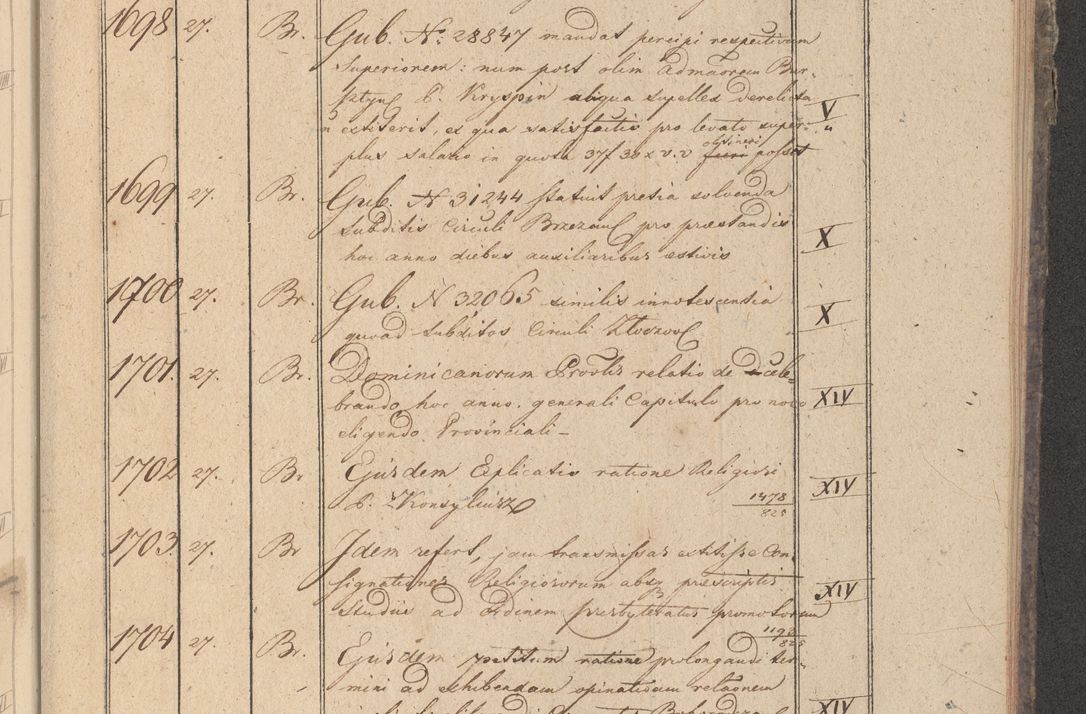 1698 27. Br. Gub. N: 28847 mandat percipi respectivum
Superiorem: num post olim Admaorem Bur-
sztyn P. Kryspin aliqua supellex derelicta V
extiterit, ex qua satisfactio pro levato super-
plus salario in quota 37f 30x v.v. obtineri posset
1699 27. Br. Gub. N 31244 statuit pretia solvenda
Subditis Circuli Brzezan pro praestandis X
hoc anno diebus auxiliaribus estivis
1700 27. Br. Gub. N 32065 similis innotescentia
quoad Subditos Circuli Złoczov X
1701. 27. Br. Dominicanorum Provlis relatio de cele-
brando hoc anno generali Capitulo pro novo XIV
eligendo Provinciali -
1702 27. Br Ejusdem Explicatio ratione Religiosi
P. Konsyliusz 1478 XIV
825
1703. 27. Br Idem refert, jam transmissas extitisse Con-
signationes Religiosorum absq praescriptis XIV
Studiis ad Ordinem presbyteratus promotorum
825
1704 27. Br. Ejusdem petitum ratione prolongandi ter-
mini ad exhibendam opinativam relaonem
XIV